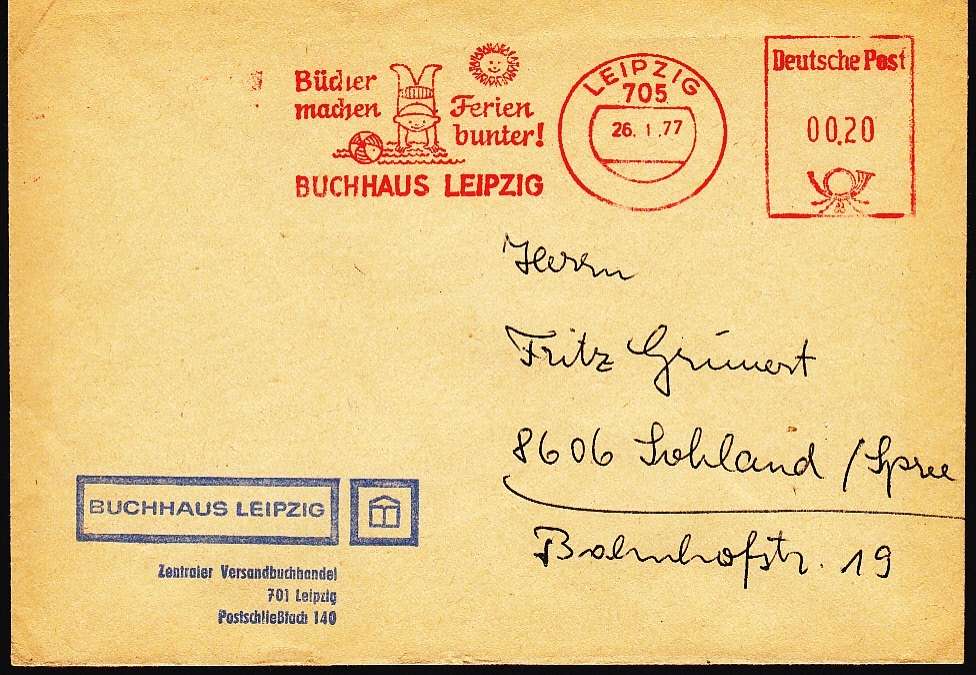 Bücher
machen Ferien
bunter!
BUCHHAUS LEIPZIG
LEIPZIG
705
26. 1. 77
Deutsche Post
00.20
Herrn
Fritz Grünert
8606 Sohland / Spree
Bahnhofstr. 19
BUCHHAUS LEIPZIG
Zentraler Versandbuchhandel
701 Leipzig
Postschließfach 140